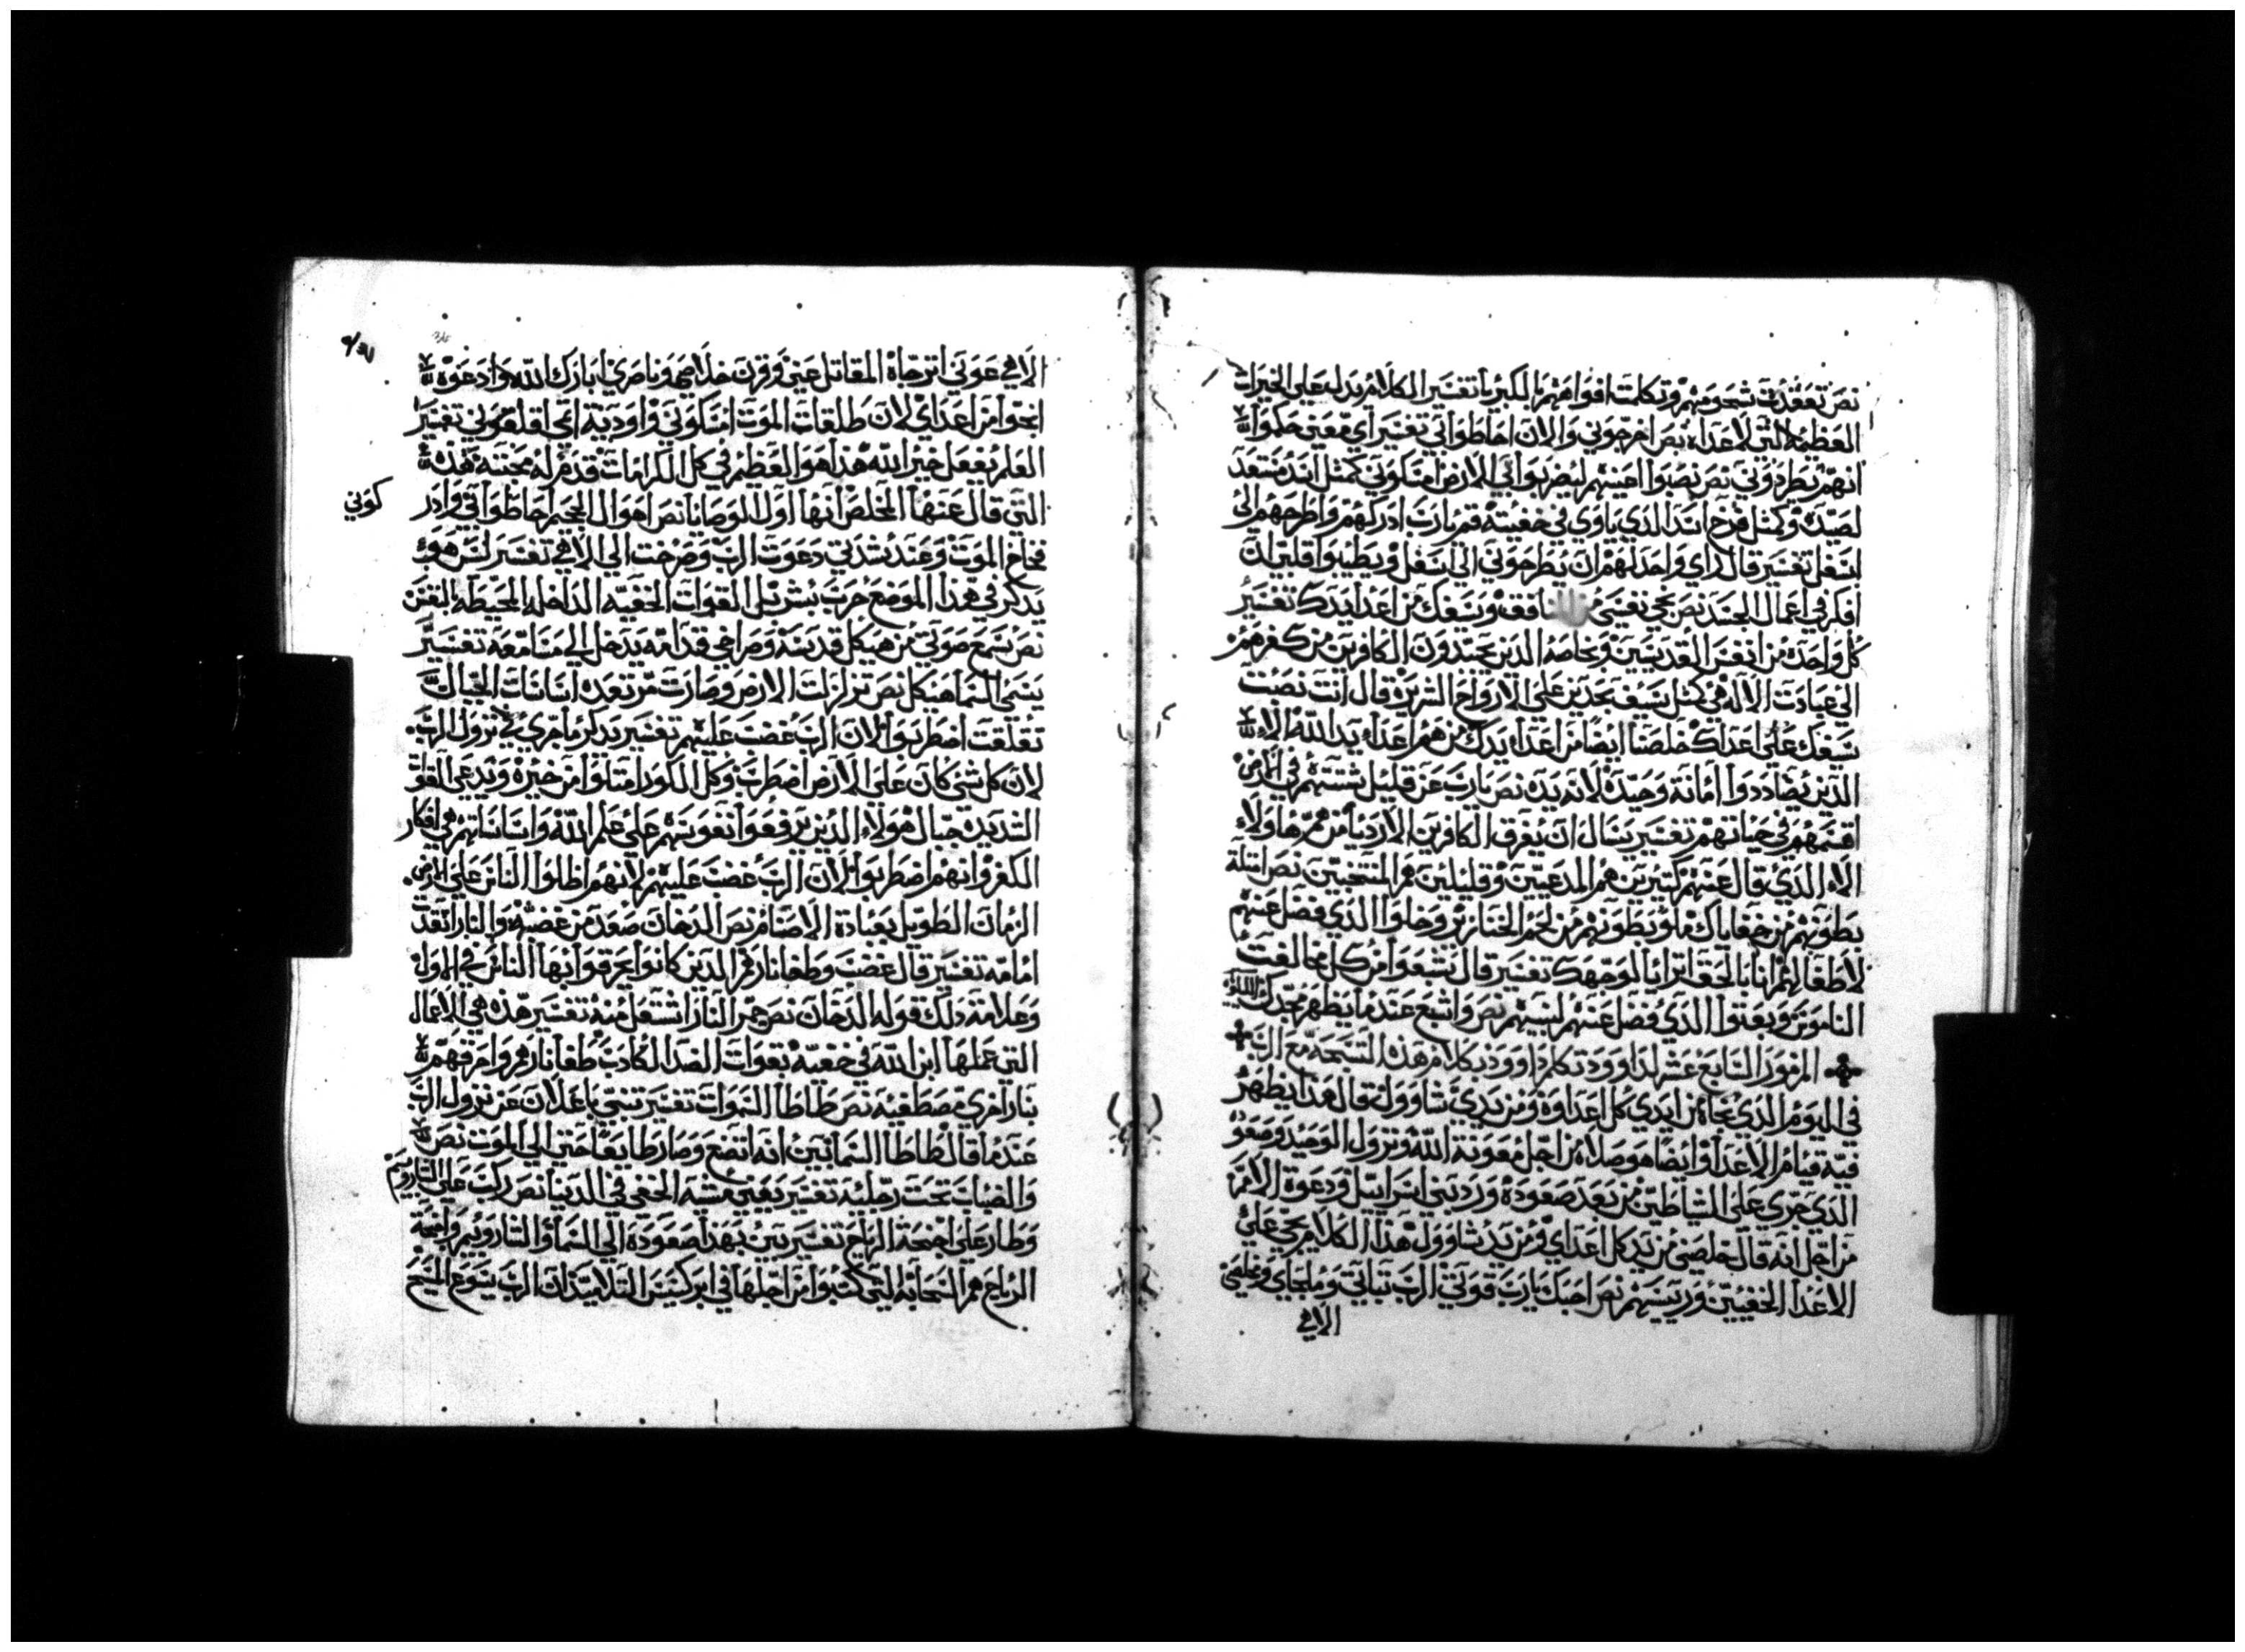 نص تعقدت شحومهم وتكلمت افواههم بالكبريا تفسير الكلام يدل علي الخيرات
العظيمه التي لاعداه نص اخرجوني والان احاطوا بي تفسير اي معني حكموا
انهم يطردوني نص نصبوا اعينهم ليضربوا بي الارض امسكوني كمثل اسد مستعد
لصيده وكمثل فرخ اسد الذي ياوي في خفيته قم يارب ادركهم واطرحهم الي
اسفل تفسير قال راي واحد لهم ان يطرحوني الي اسفل ويطيبوا قلبي ان
افكر في اعمال الجسد نص نجي نفسي من المنافق وسيفك من اعدا يدك تفسير
كل واحده من انفس القديسين وبخاصه الذين يجتدون الكافرين من كفرهم
الي عبادت الاله هي كمثل سيف بحدين علي الارواح الشريره قال انت نصبت
سيفك علي اعداك خلصنا ايضا من اعدا يدك من هم اعدا يد الله الا
الذين يضاددوا امانة وحيده لانه يده نص يارب عن قليل شتتهم في الارض
اقسمهم في حياتهم تفسير يسال ان يفرق الكافرين الارديا من هم هاولاء
الا الذي قال عنهم كتيرين هم المدعيين وقليلين هم المنتخبين نص امتلة
بطونهم من خفاياك ملو بطونهم من لحم الخنازير وخلوا الذي فضل عنهم
لاطفالهم انا بالحق اترايا لوجهك تفسير قال شبعوا من كل مخالفت
الناموس وبعتوا الذي فضل عنهم لبنيهم نص واشبع عندما يظهر مجدك
المزمور السابع عشر لداوود تكلم داوود بكلام هذه التسبحه مع الرب
في اليوم الذي نجاه من ايدي كل اعداوه ومن يدي شاوول قال هذا يظهر
فيه قيام الاعدا وايضا هو صلاه من اجل معونة الله ونزول الوحيد وصعو
الذي جري علي الشياطين من بعد صعوده ورد بني اسراييل ودعوة الامم
من اجل انه قال خلصني من يد كل اعداي ومن يد شاوول هذا الكلام يجي علي
الاعدا الخفيين ورييسهم نص احبك يارب قوتي الرب تباتي وملجاي ومخلصي
الاهي
الاهي عوني اترجاه المقاتل عني وقرن خلاصي وناصري ابارك الله وادعوه
انجوا من اعداي لان طلقات الموت امسكوني واوديه اتمي اقلقوني تفسير
العلم يفعل خير الله هذا هو العظيم في كل الكرامات قدم له محبته هذه
التي قال عنها المخلص انها اول الوصايا نص اهوال الجحيم احاطوا بي وادر
كوني
فخاخ الموت وعند شدتي دعوت الرب وصرخت الي الاهي تفسير ليس هو
يدكر في هذا الموضع حرب بشر بل القوات الخفيه الداخله المحيطه بالنفس
نص سمع صوتي من هيكل قدسه وصراخي قدامه يدخل الي مسامعه تفسير
يسمي السما هيكل نص تزلزلت الارض وصارت مرتعده اساسات الجبال
تقلقت اضطربوا لان الرب غضب عليهم تفسير يدكر ما جري في نزول الرب
لان كل شي كان علي الارض اضطرب وكل الكور امتلوا من خيره ويدعي القوا
الشديده جبال هولاء الذين ترفعوا نفوسهم علي علم الله واساساتهم هي افكار
الكفر وانهم اضطربوا لان الرب غضب عليهم لانهم اظلوا الناس علي الارض
الزمان الطويل بعبادة الاصنام نص الدخان صعد من غضبه والنار اتقدت
امامه تفسير قال غضب وطفا نارهم الذين كانوا يحرقوا بها الناس في الاول
وعلامة دلك قوله الدخان نص جمر النار اشتعل منه تفسير هذه هي الاعمال
التي عملها ابن الله في خفيه بقوات الضد الكادب طفا نارهم واحرقهم
بنار اخري مصطفيه نص طاطا السموات تفسير تنبي باعلان عن نزول الرب
عندما قال طاطا السما تبين انه اتضع وصار طايعا حتي الي الموت نص
والضباب تحت رجليه تفسير يعني مشيه الخفي في الدنيا نص ركب علي الشاروبيم
وطار علي اجنحة الرياح تفسير تبين بهذا صعوده الي السما والشاروبيم واجنحة
الرياح هم السحابه التي كتبوا من اجلها في ابركسيس التلاميذ ان الرب يسوع المسيح